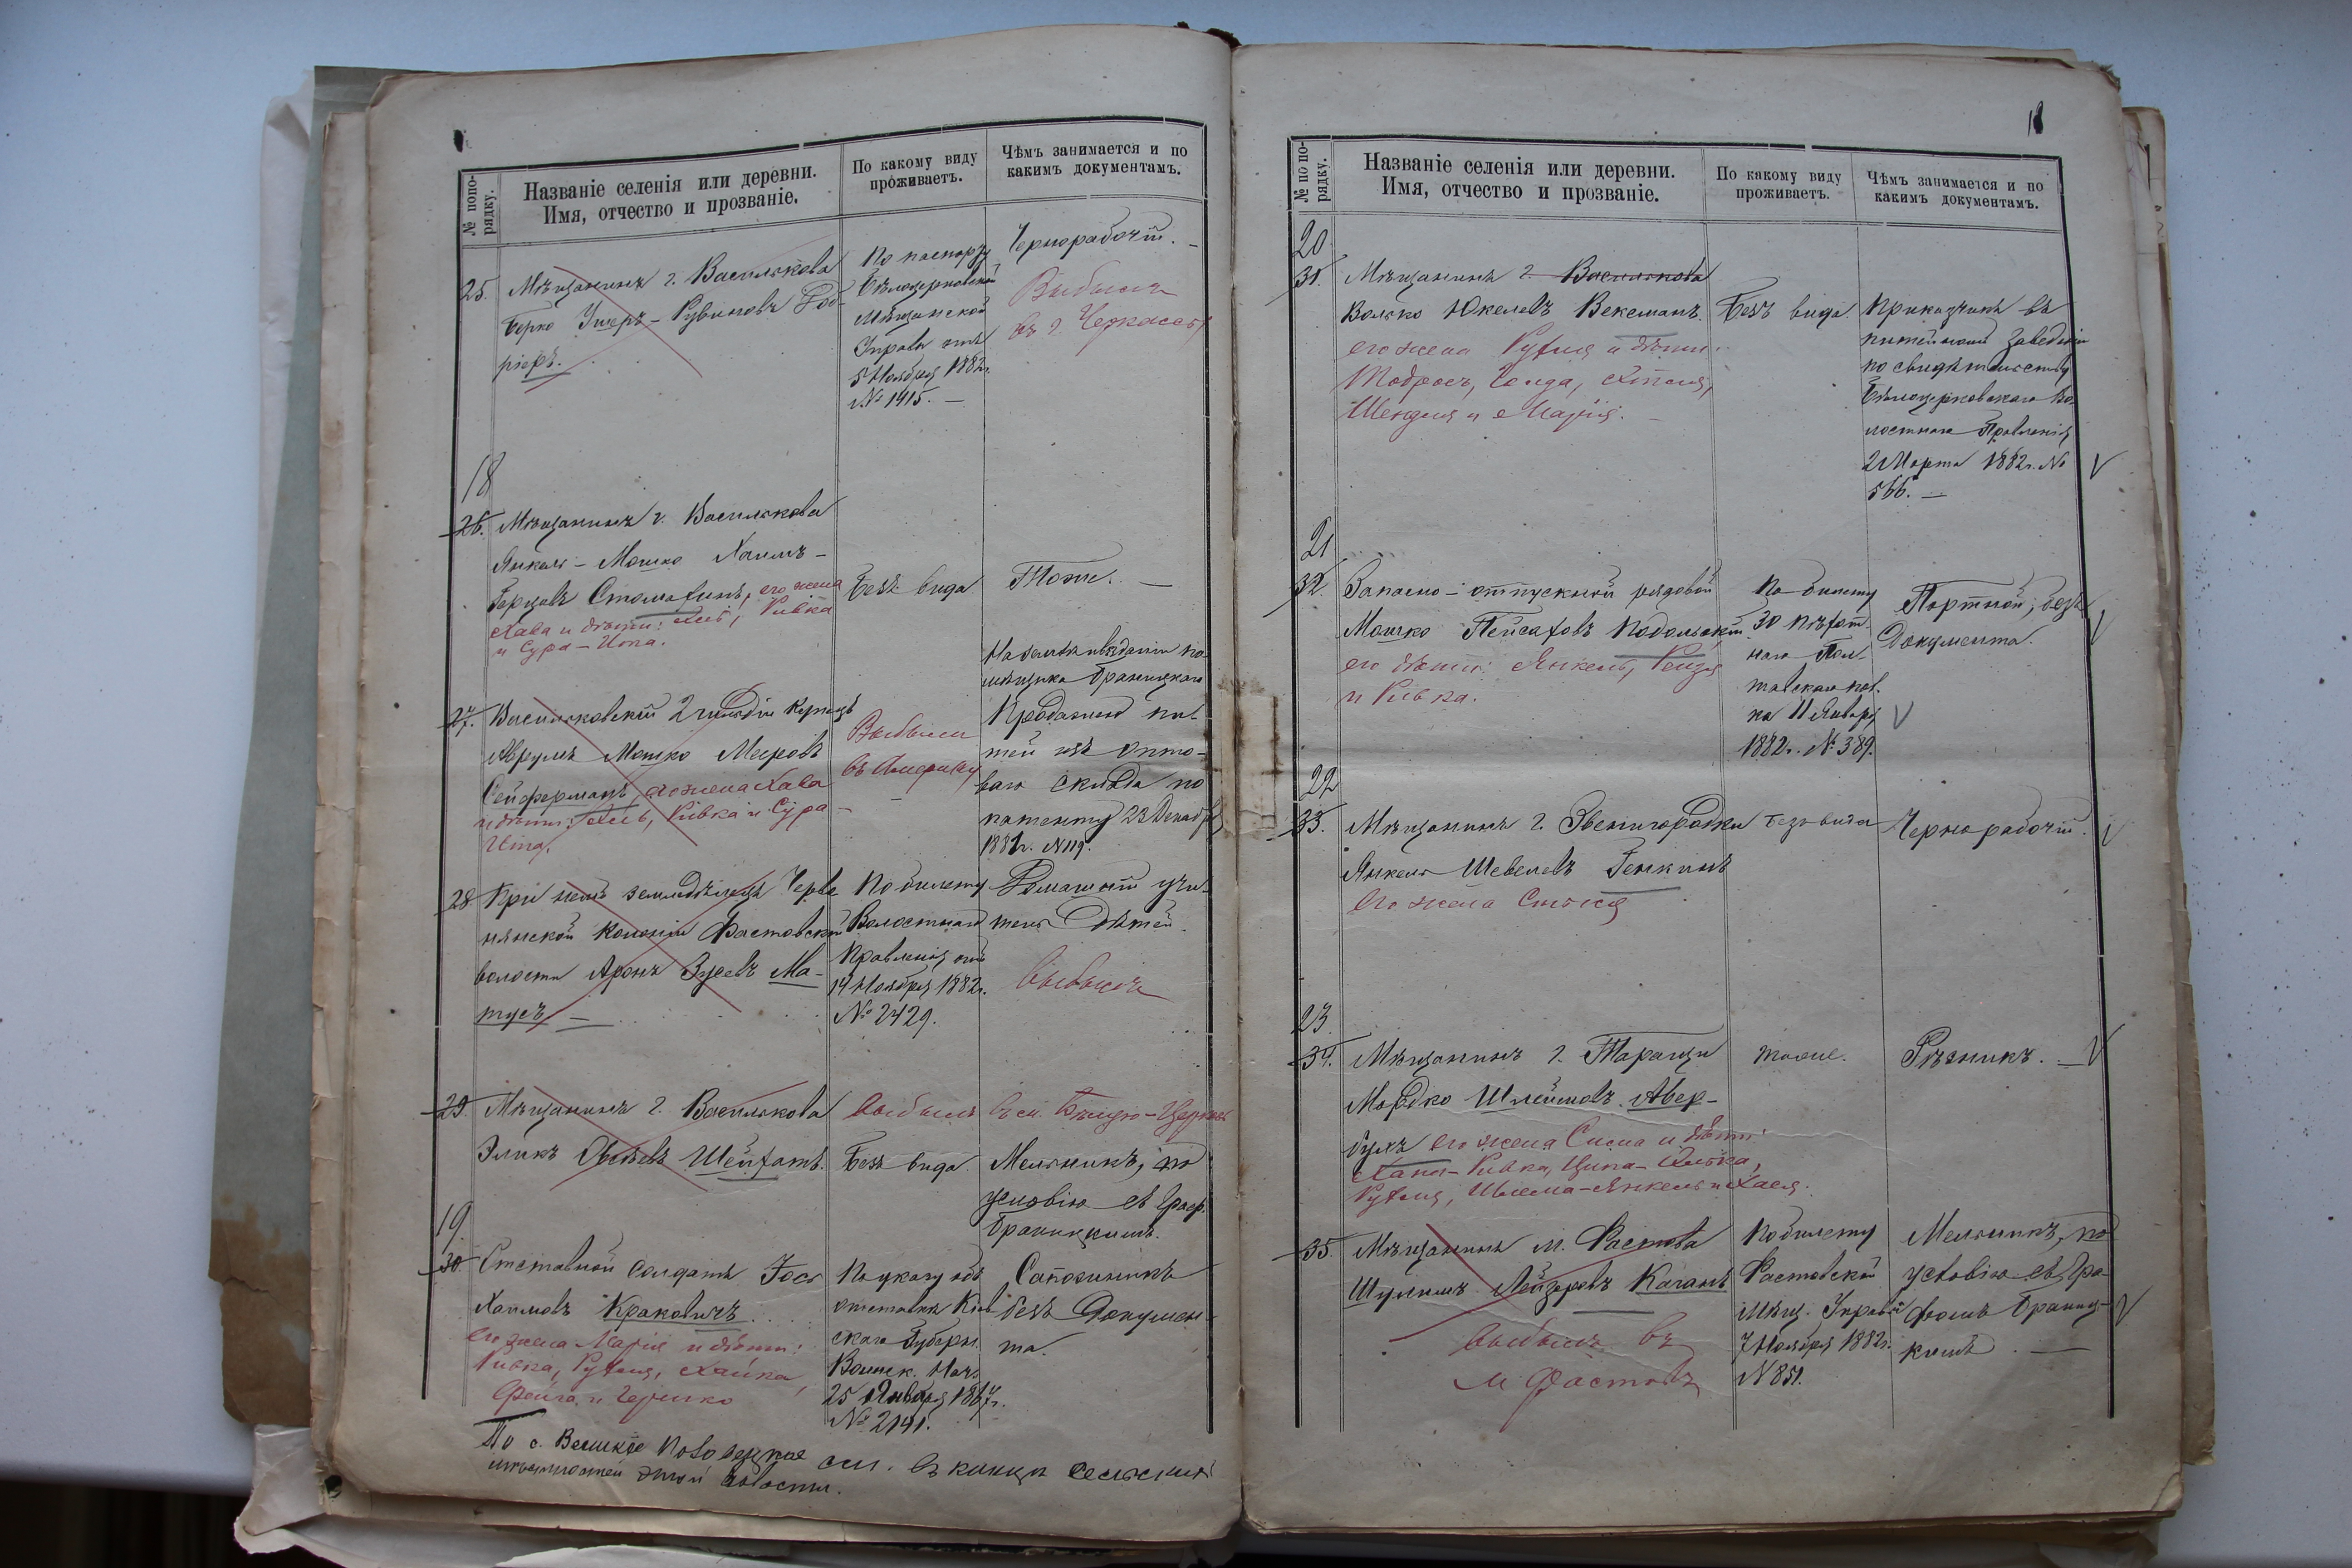 № попо-
рядку.
Названіе селенія или деревни.
Имя, отчество и прозваніе.
По какому виду
проживаетъ.
Чѣмъ занимается и по
какимъ документамъ.
25. Мѣщанинъ г. Василькова
Берко Рувиновъ
По паспорту
Бѣлоцерковской
Мѣщанской
Управы отъ
5 Ноября 1882 г.
№ 1415. —
Чернорабочій. —
Выбылъ
въ г. Черкассы
18
26. Мѣщанинъ г. Василькова
Янкель – Мошко Хаимъ –
Берковъ его жена
Хава и дѣти: Ривка
и Сура – Ита.
Безъ вида
Тоже. —
27. Васильковскій 2 гильдіи Купецъ
Аврумъ Мошко Меировъ
Сейферманъ, его жена Хава
и дѣти: Ривка и Сура –
Ита.
Выбыли
въ Америку
На землевладѣніи по-
мѣщика Браницкаго
Продажею пи-
тей изъ опто-
ваго склада по
патенту 23 Декабря
188 г. № 119.
28. При немъ земледѣлецъ Черве
нянской Колоніи Фастовской
волости Аронъ Зусевъ Ма-
тусъ —
По билету
Волостнаго
Правленія отъ
14 Ноября 1882 г.
№ 2429.
Домашній учи-
тель Дѣтей.
Выбылъ
29. Мѣщанинъ г. Василькова
Эликъ Овсѣевъ
выбылъ въ Бѣлую – Церковь
Безъ вида.
Мельникъ, по
условію съ Граф.
Браницкимъ.
19
30. Отставной Солдатъ Іось
Хаимовъ Краковичъ
Его жена Марія и дѣти:
Ривка, Рухля, Хайка,
Фейга и Гершко
По указу объ
отставкѣ Кіев
скаго Губерн.
Воинск. Нач.
25 Января 1867 г.
№ 2141.
Сапожникъ
безъ Докумен-
та.
По с. Великое въ концѣ сельскихъ
этой волости.
№ по по-
рядку.
Названіе селенія или деревни.
Имя, отчество и прозваніе.
По какому виду
проживаетъ.
Чѣмъ занимается и по
какимъ документамъ.
20
31. Мѣщанинъ г. Василькова
Волько Юкелевъ Векеманъ.
его жена Рухля и дѣти:
Тодросъ, Голда,
Шендля и Марія. —
Безъ вида.
Прикащикъ въ
питейномъ заведеніи
по свидѣтельству
Бѣлоцерковскаго Во-
лостнаго Правленія
2 Марта 1882 г. №
566. —
21
32. Запасно – отпускной рядовой
Мошко Пейсаховъ Подольскій
его дѣти: Янкель, Рейзя
и Ривка.
По билету
30 пѣхот-
наго Пол-
тавскаго пол-
ка 11 Января
1882 г. № 389.
Портной, безъ
Документа.
22
33. Мѣщанинъ г. Звенигородки
Янкель Шевелевъ Генкинъ
Его жена
безъ вида
Чернорабочій.
23
34. Мѣщанинъ г. Таращи
Мордко Шлеймовъ Авер-
бухъ его жена Сима и дѣти:
Хана – Ривка, Ципа –
Рухля, – Янкель и Хаея.
тоже.
Рѣзникъ. —
35. Мѣщанинъ м. Фастова
Шулимъ Лейзеровъ Каганъ
выбылъ въ
м Фастовъ
По билету
Фастовской
Мѣщ. Управы
7 Ноября 1882 г.
№ 851.
Мельникъ, по
условію съ Гра-
фомъ Браниц-
кимъ. —